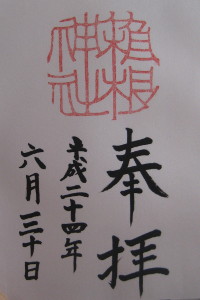 箱根
神社
奉拝
平成二十四年
六月三十日